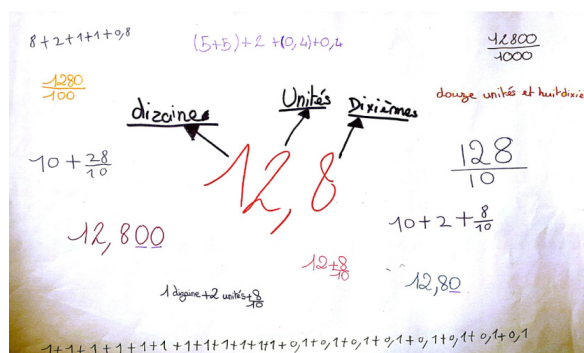 8+2+1+1+0,8
(5+5)+2+(0,4)+0,4
12800/1000
1280/100
dizaines Unités Dixièmes
douze unités et huit dixiè
12,8
10+28/10
128/10
12,800
10+2+8/10
12+8/10
12,80
1 dizaine+2 unités+8/10
1+1+1+1+1+1+1+1+1+1+1+1+0,1+0,1+0,1+0,1+0,1+0,1+0,1+0,1